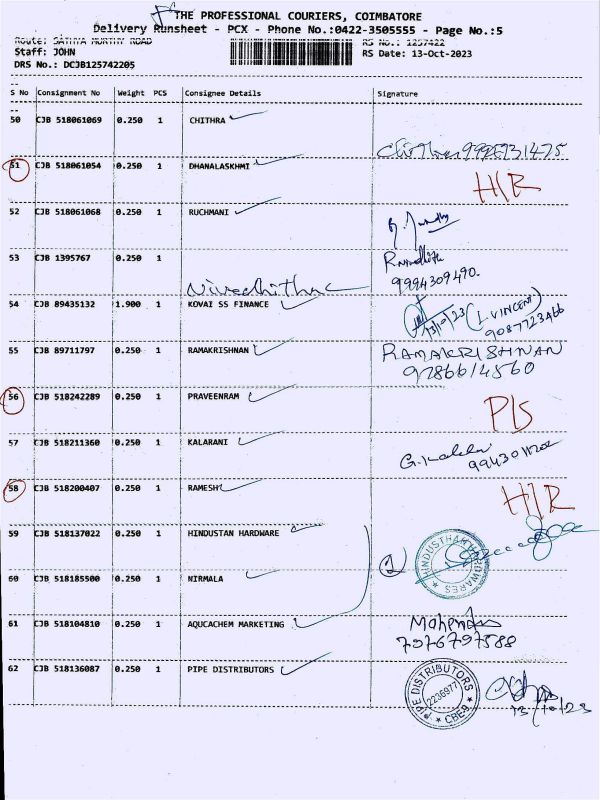 THE PROFESSIONAL COURIERS, COIMBATORE
Delivery Runsheet - PCX - Phone No.:0422-3505555 - Page No.:5
Route: SATHYA MURTHY ROAD RS No.: 1257422
Staff: JOHN RS Date: 13-Oct-2023
DRS No.: DCJB125742205
S No Consignment No Weight PCS Consignee Details Signature
50 CJB 518061069 0.250 1 CHITHRA
51 CJB 518061054 0.250 1 DHANALASKHMI H/R
52 CJB 518061068 0.250 1 RUCHMANI
53 CJB 1395767 0.250 1 Nivedhitha
9994309490.
54 CJB 89435132 1.900 1 KOVAI SS FINANCE 13/10/23 (L. VINCENT)
9087723466
55 CJB 89711797 0.250 1 RAMAKRISHNAN RAMAKRISHNAN
9786614560
56 CJB 518242289 0.250 1 PRAVEENRAM P/S
57 CJB 518211360 0.250 1 KALARANI
58 CJB 518200407 0.250 1 RAMESH H/R
59 CJB 518137022 0.250 1 HINDUSTAN HARDWARE
HINDUSTHAN HARDWARES
60 CJB 518185500 0.250 1 NIRMALA
61 CJB 518104810 0.250 1 AQUCACHEM MARKETING Mahendra
7976797588
62 CJB 518136087 0.250 1 PIPE DISTRIBUTORS
PIPE DISTRIBUTORS
2236977
CBE-9
13/10/23